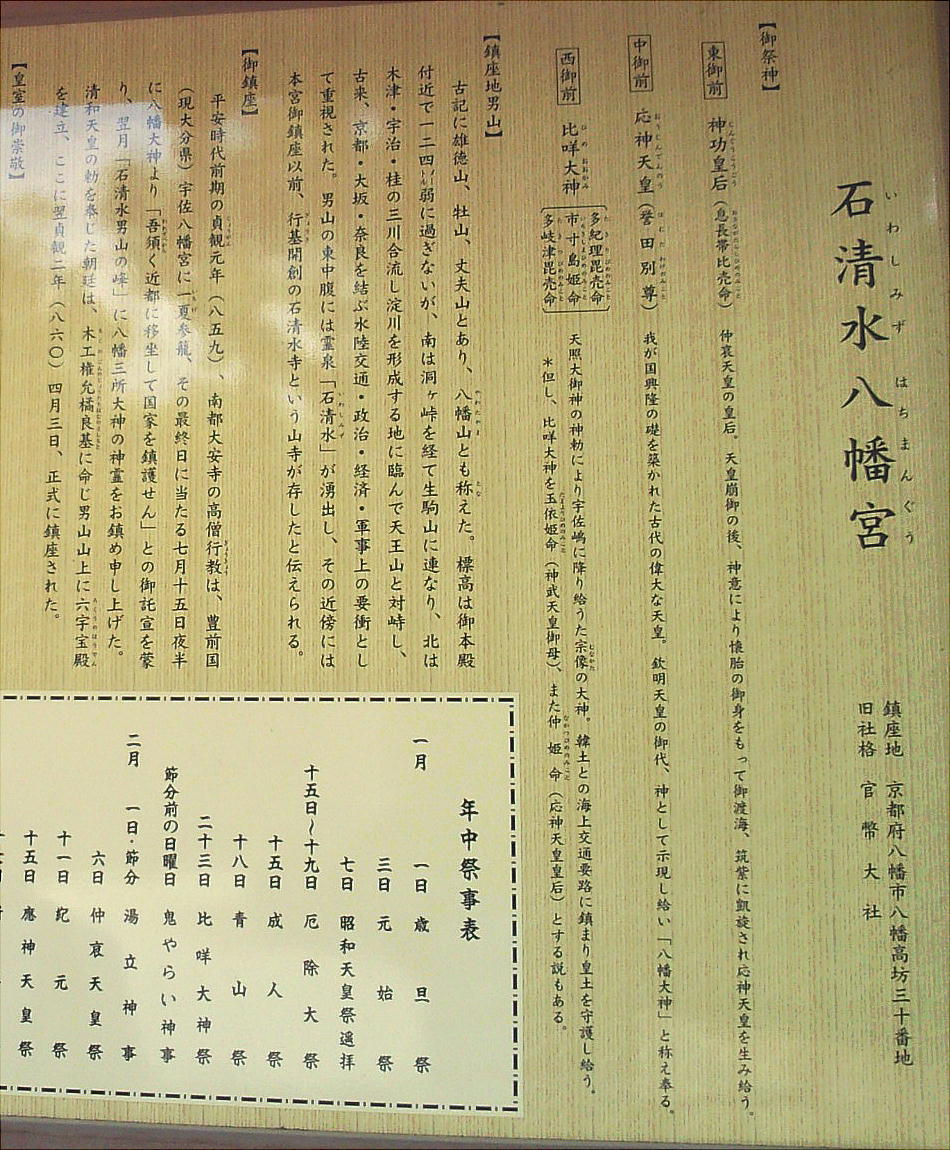 石清水八幡宮
いわしみずはちまんぐう
鎮座地 京都府八幡市八幡高坊三十番地
旧社格 官幣大社
【御祭神】
東御前 神功皇后（息長帯比売命） 仲哀天皇の皇后。天皇崩御の後、神意により懐胎の御身をもって御渡海、筑紫に凱旋され応神天皇を生み給う。
中御前 応神天皇（誉田別尊） 我が国興隆の礎を築かれた古代の偉大な天皇。欽明天皇の御代、神として示現し給い「八幡大神」と称え奉る。
西御前 比咩大神
多紀理毘売命
市寸島姫命
多岐津毘売命
天照大御神の神勅により宇佐嶋に降り給うた宗像の大神。韓土との海上交通要路に鎮まり皇土を守護し給う。
＊但し、比咩大神を玉依姫命（神武天皇御母）、また仲姫命（応神天皇皇后）とする説もある。
【鎮座地男山】
古記に雄徳山、牡山、丈夫山とあり、八幡山とも称えた。標高は御本殿
付近で一二四㍍弱に過ぎないが、南は洞ヶ峠を経て生駒山に連なり、北は
木津・宇治・桂の三川合流し淀川を形成する地に臨んで天王山と対峙し、
古来、京都・大坂・奈良を結ぶ水陸交通・政治・経済・軍事上の要衝とし
て重視された。男山の東中腹には霊泉「石清水」が湧出し、その近傍には
本宮御鎮座以前、行基開創の石清水寺という山寺が存したと伝えられる。
【御鎮座】
平安時代前期の貞観元年（八五九）、南都大安寺の高僧行教は、豊前国
（現大分県）宇佐八幡宮に一夏参籠、その最終日に当たる七月十五日夜半
に八幡大神より「吾須く近都に移坐して国家を鎮護せん」との御託宣を蒙
り、翌月「石清水男山の峰」に八幡三所大神の神霊をお鎮め申し上げた。
清和天皇の勅を奉じた朝廷は、木工権允橘良基に命じ男山山上に六宇宝殿
を建立、ここに翌貞観二年（八六〇）四月三日、正式に鎮座された。
【皇室の御崇敬】
年中祭事表
一月 一日 歳旦祭
三日 元始祭
七日 昭和天皇祭遥拝
十五日〜十九日 厄除大祭
十五日 成人祭
十八日 青山祭
二十三日 比咩大神祭
節分前の日曜日 鬼やらい神事
二月 一日・節分 湯立神事
六日 仲哀天皇祭
十一日 紀元祭
十五日 應神天皇祭